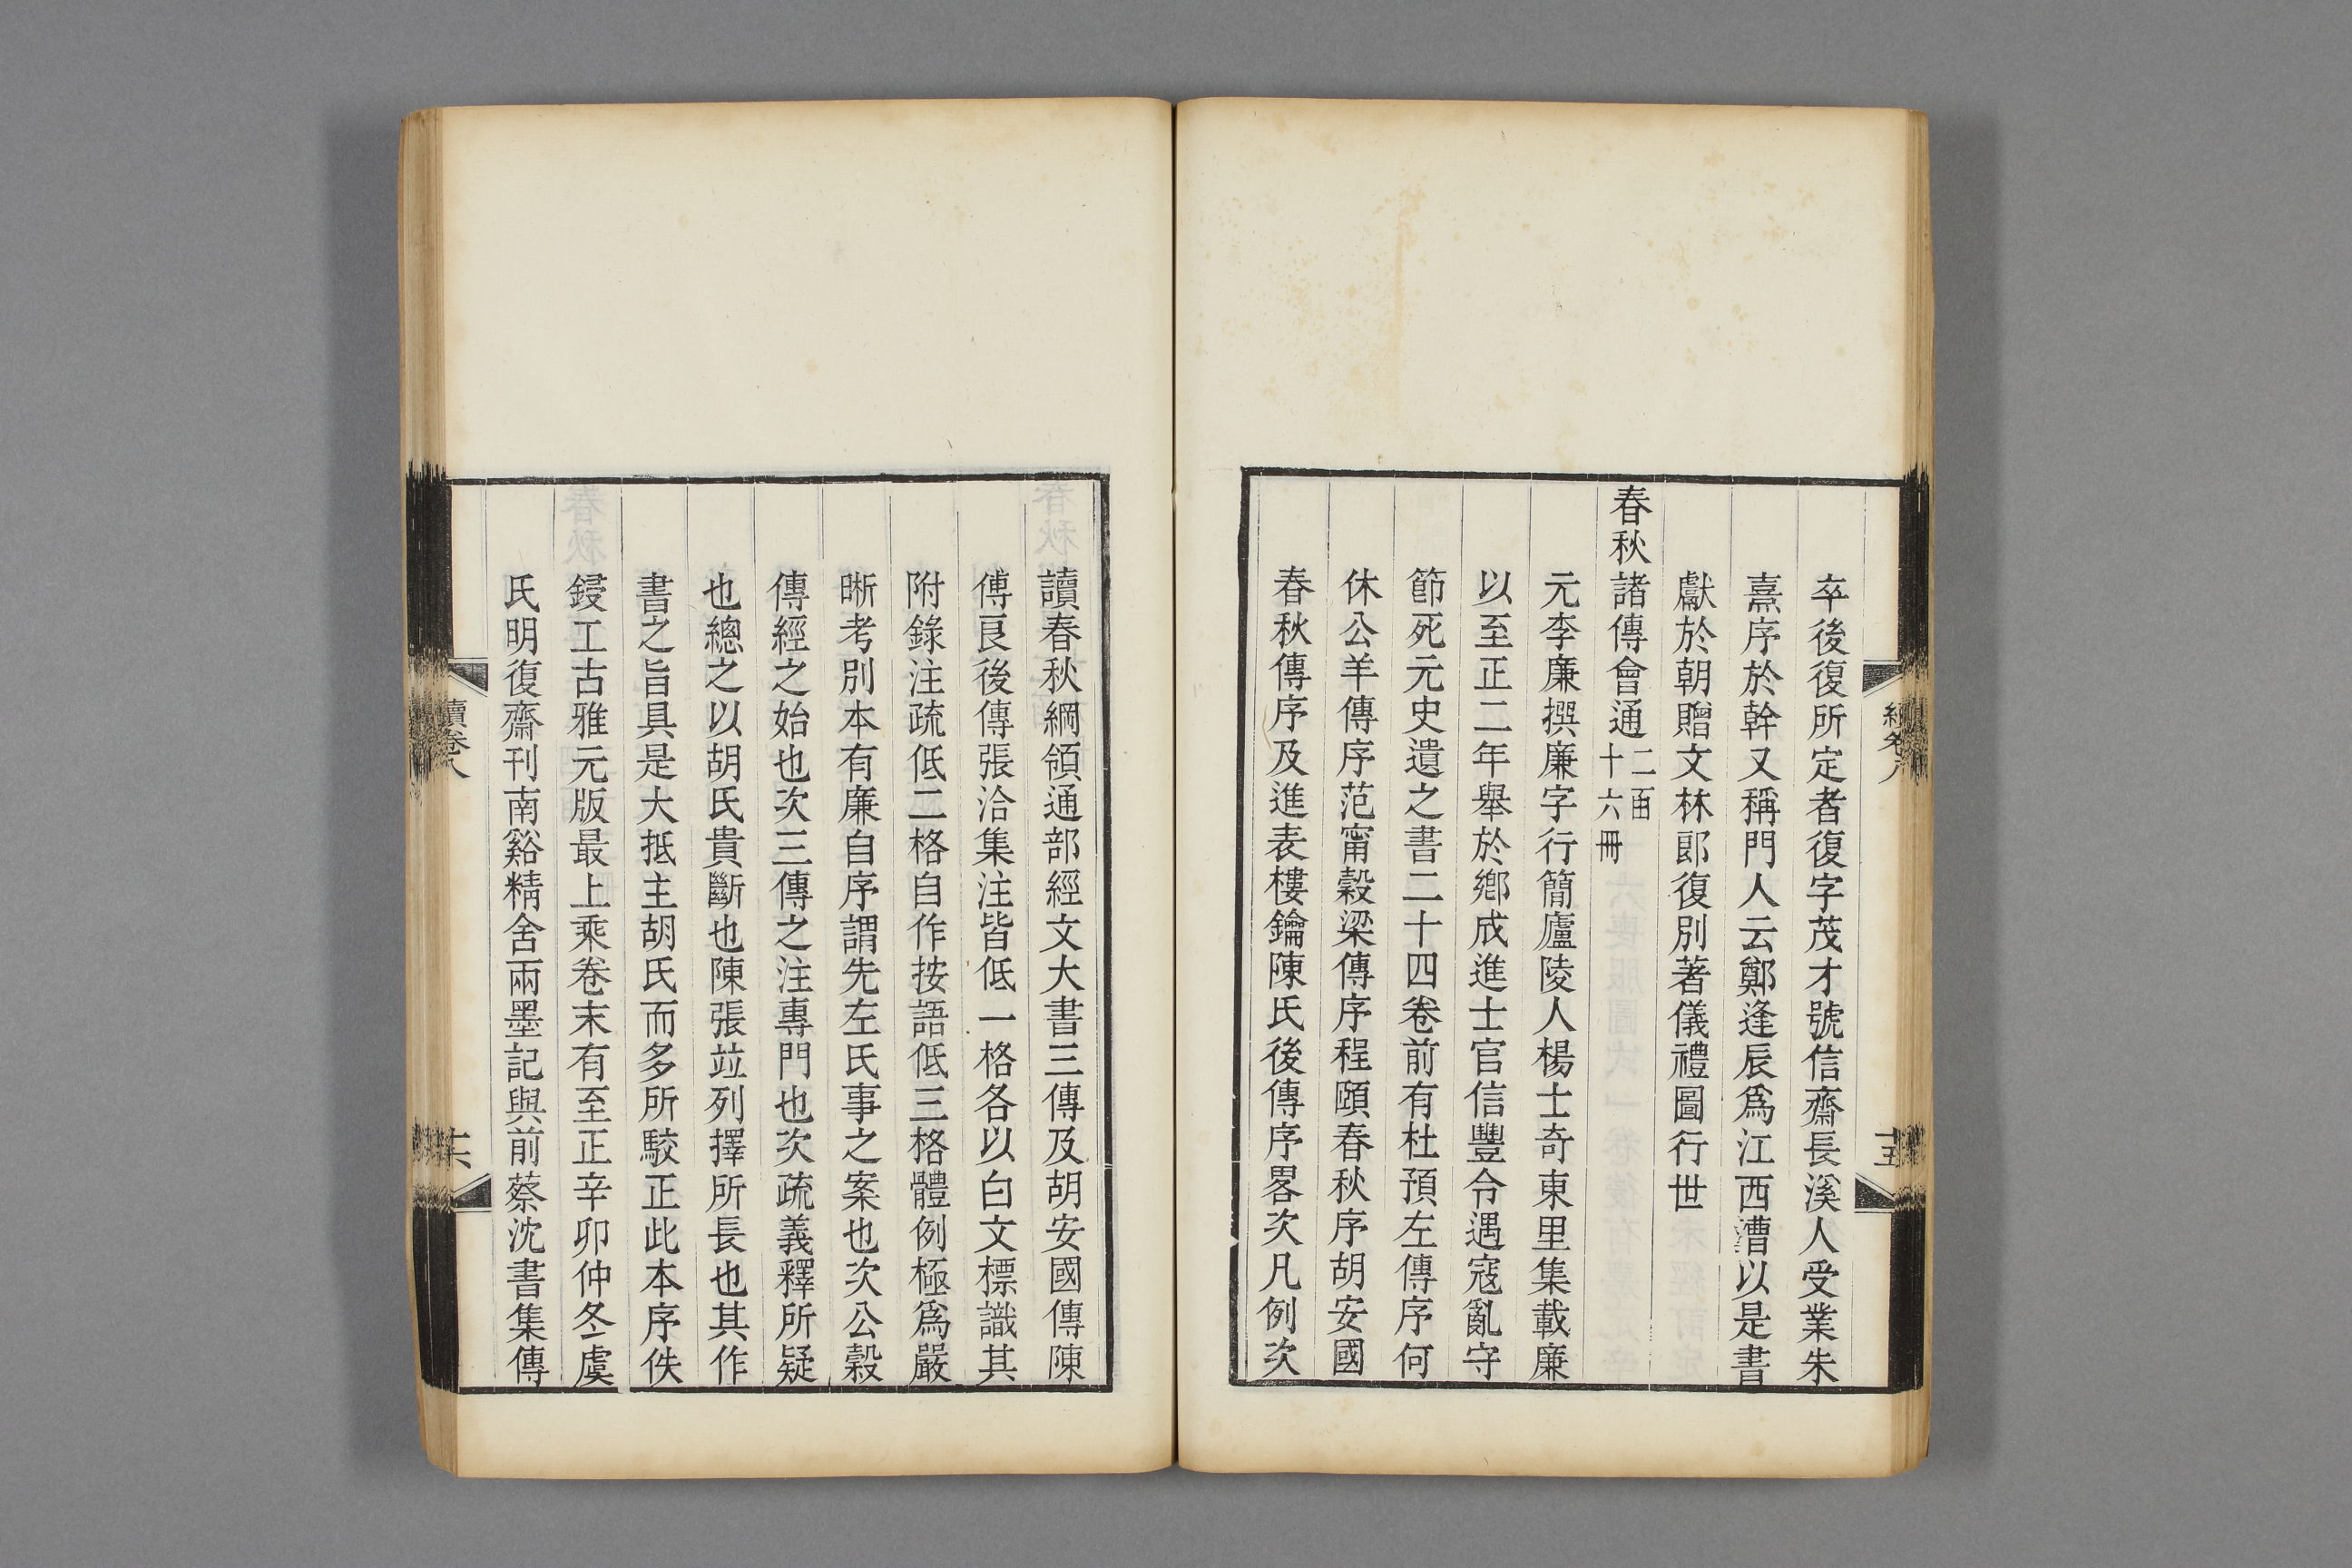 卒後復所定者復字茂才號信齋長溪人受業朱
熹序於幹又稱門人云鄭逢辰爲江西漕以是書
獻於朝贈文林郎復別著儀禮圖行世
春秋諸傳會通二函十六冊
元李廉撰廉字行簡廬陵人楊士奇東里集載廉
以至正二年舉於鄉成進士官信豐令遇寇亂守
節死元史遺之書二十四卷前有杜預左傳序何
休公羊傳序范甯穀梁傳序程頤春秋序胡安國
春秋傳序及進表樓鑰陳氏後傳序畧次凡例次
讀春秋綱領通部經文大書三傳及胡安國傳陳
傅良後傳張洽集注皆低一格各以白文標識其
附錄注疏低二格自作按語低三格體例極爲嚴
晰考別本有廉自序謂先左氏事之案也次公穀
傳經之始也次三傳之注專門也次疏義釋所疑
也總之以胡氏貴斷也陳張竝列擇所長也其作
書之旨具是大抵主胡氏而多所駮正此本序佚
鋟工古雅元版最上乘卷末有至正辛卯仲冬虞
氏明復齋刊南谿精舍兩墨記與前蔡沈書集傳
卷八
十六